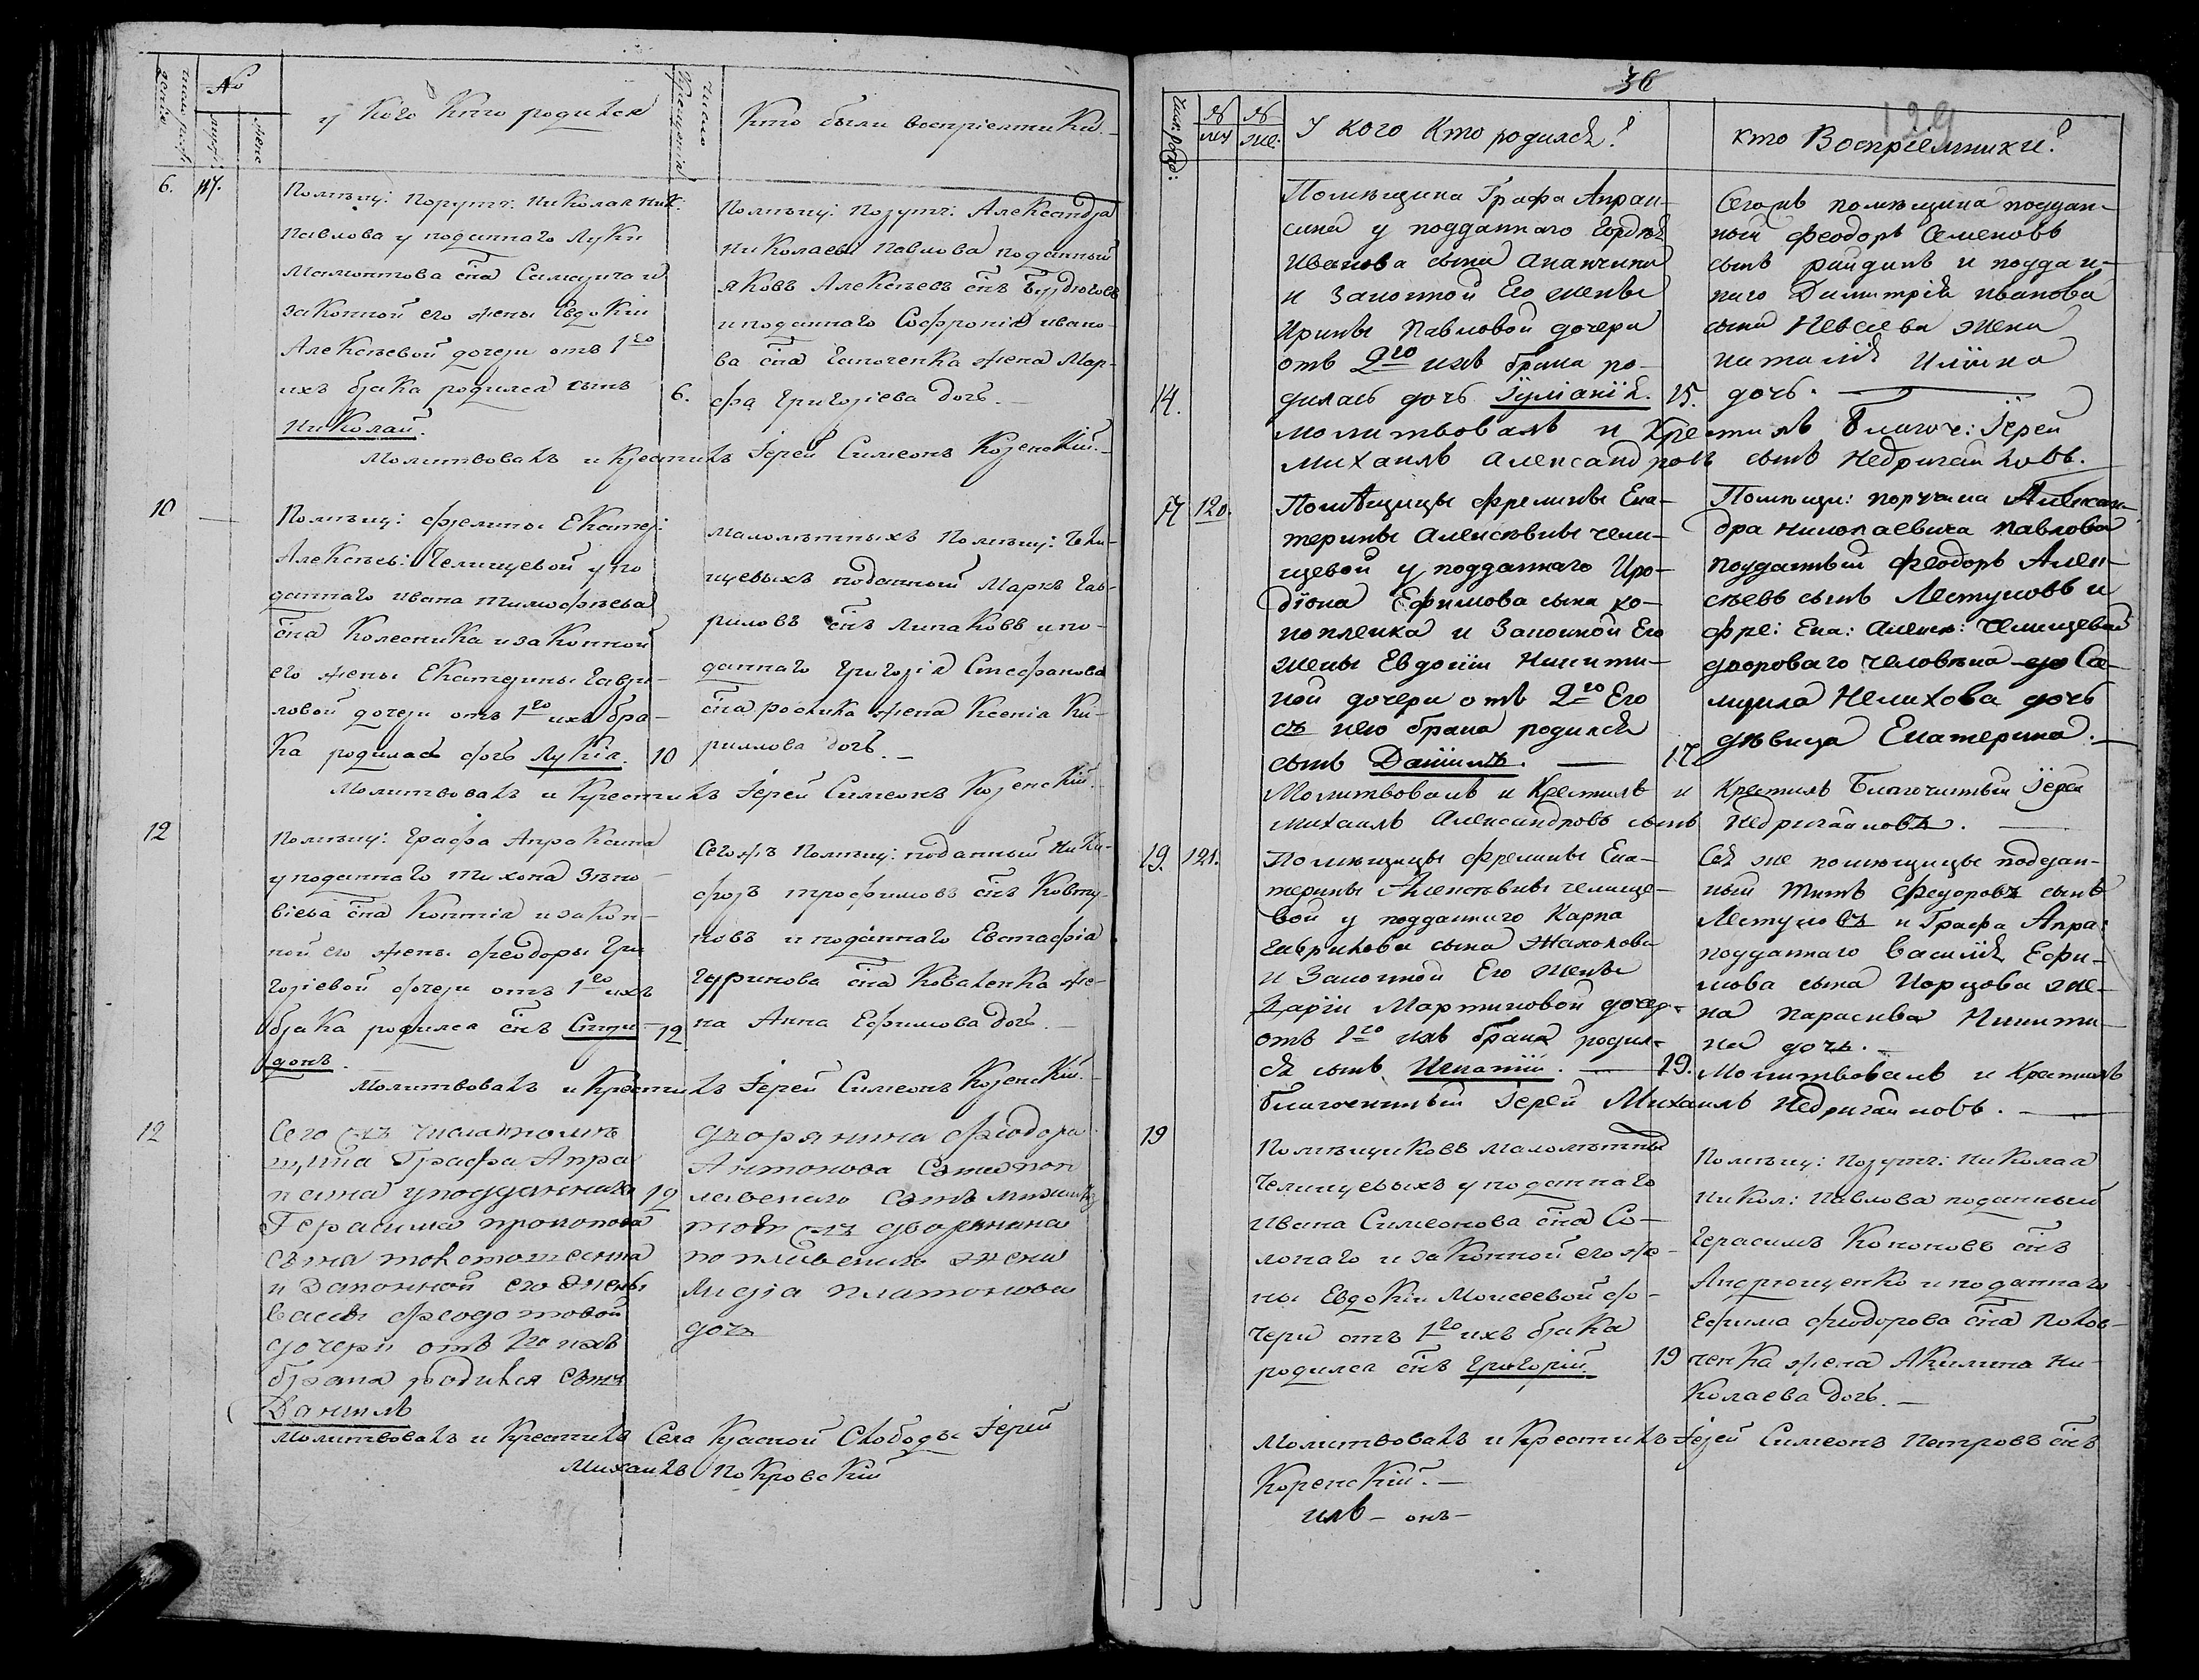 число рождения
№
мужс:
женс
у Кого Кто родился
число Крещения
Кто были воспріемтики
6.
117.
Помѣщ: Порутч: Николая Ник:
Павлова у поданнаго Луки
Мамонтова сна
законной его жены Евдокіи
Алексѣевой дочери отъ 1го
ихъ брака родился сынъ
Николай.
6.
Помѣщ: Порутч: Александра
Николаевы Павлова поданный
яковъ Алексѣевъ снъ Бурдюговъ
и поданнаго Софронія ивано-
ва сна жена Мар-
фа Григоріева дочь.
Молитвовалъ и Крестилъ Іерей Симеонъ Коренскій.
10
Помѣщ: Фрелины Екатер:
Алексѣев: Челищевой у по
даннаго ивана тимофѣева
сна Колесника и законной
его жены Екатерины Гаври-
ловой дочери отъ 1го ихъ бра-
ка родилась дочь Лукія.
10
малолѣтныхъ Помѣщ: Чели-
щевыхъ поданный Маркъ Гав-
риловъ снъ Липаковъ и по-
даннаго Григорія Стефанова
сна жена Ксенія Ки-
риллова дочь.
Молитвовалъ и Крестилъ Іерей Симеонъ Коренскій.
12
Помѣщ: Графа Апраксина
у поданнаго тихона Зѣно-
віева сна Коптія и закон-
ной его жены феодоры Гри
горіевой дочери отъ 1го ихъ
брака родился снъ Спири-
донъ.
12
Сегожъ Помѣщ: поданный Ники-
форъ трофимовъ снъ Ковту-
новъ и поданнаго Евстафія
Гуринова сна Коваленка же-
на Анна Ефимова дочь.
Молитвовалъ и Крестилъ Іерей Симеонъ Коренскій.
12
Сего жъ числа помѣ
щика Графа Апра
ксина у подданнаго
Герасима прокопова
сына
и Законной его жены
Васы Феодотовой
дочери отъ 1го ихъ
брака родился сынъ
Даниилъ
12
дворянина Феодора
Антонова сына поп
лавскаго сынъ михаилъ
тогожъ дворянина
поплавскаго жена
Лидіа платонова
дочь
Молитвовалъ и Крестилъ Села Красной Слободы Іерей
Михаилъ Покровскій
36
129
Числ: рожд:
№
муж
№
же.
У кого Кто родился?
кто Воспріемники?
14.
Помѣщика Графа Апрак-
сина у подданаго Гордѣя
Иванова сына Ананчина
и Законной Его жены
Ирины Павловой дочери
отъ 2го ихъ брака ро-
дилась дочь Іуліанія.
15.
Сегожъ помѣщика поддан-
ный Феодоръ Семеновъ
сынъ и поддан-
наго Димитрія иванова
сына жена
наталія Иліина
дочь.
молитвовалъ и Крестилъ Благоч: Іерей
Михаилъ Александровъ сынъ Недригайловъ.
17
120.
Помѣщицы фрелины Ека-
терины Алексѣвны чели-
щевой у подданнаго Иро-
діона Ефимова сына ко-
ноплеика и Законной Его
жены Евдокіи Никити-
ной дочери отъ 2го Его
съ нею брака родился
сынъ Даніилъ.
17
Помѣщи: порутчика Алексан-
дра Николаевича Павлова
подданный Феодоръ Алек-
сѣевъ сынъ Лестуновъ и
фре: Ека: Алекс: Челищевой
двороваго человѣка Са-
муила Нелихова дочь
дѣвица Екатерина.
Молитвовалъ и Крестилъ и Крестилъ Благочинный Іерей
михаилъ Александровъ сынъ Недригайловъ.
19.
121.
Помѣщицы Фрелины Ека-
терины Алексѣвны челище-
вой у подданнаго Карпа
Гаврилова сына Жахолова
и Законной Его жены
Даріи Мартиновой дочер.
отъ 1го ихъ брака родил-
ся сынъ Игнатій.
19.
Сея же помѣщицы поддан-
ный Титъ Федоровъ сынъ
Лестуновъ и Графа Апра:
подданнаго Василія Ефи-
мова сына жe-
на Параскива Никити-
на дочь.
Молитвовалъ и Крестилъ
благочинный Іерей Михаилъ Недригайловъ.
19
Помѣщиковъ малолѣтны
Челищевыхъ у поданнаго
ивана Симеонова сна Со-
лопаго и законной его же-
ны Евдокіи Моисеевой до-
чери отъ 1го ихъ брака
родился снъ Григорій
19
Помѣщ: Порутч: Николая
Никол: Павлова поданный
Герасимъ Кононовъ снъ
Андрющенко и поданнаго
Ефима Феодорова сна
ченка жена Акилина Ни-
колаева дочь.
Молитвовалъ и Крестилъ Іерей Симеонъ Петровъ снъ
Коренскій.